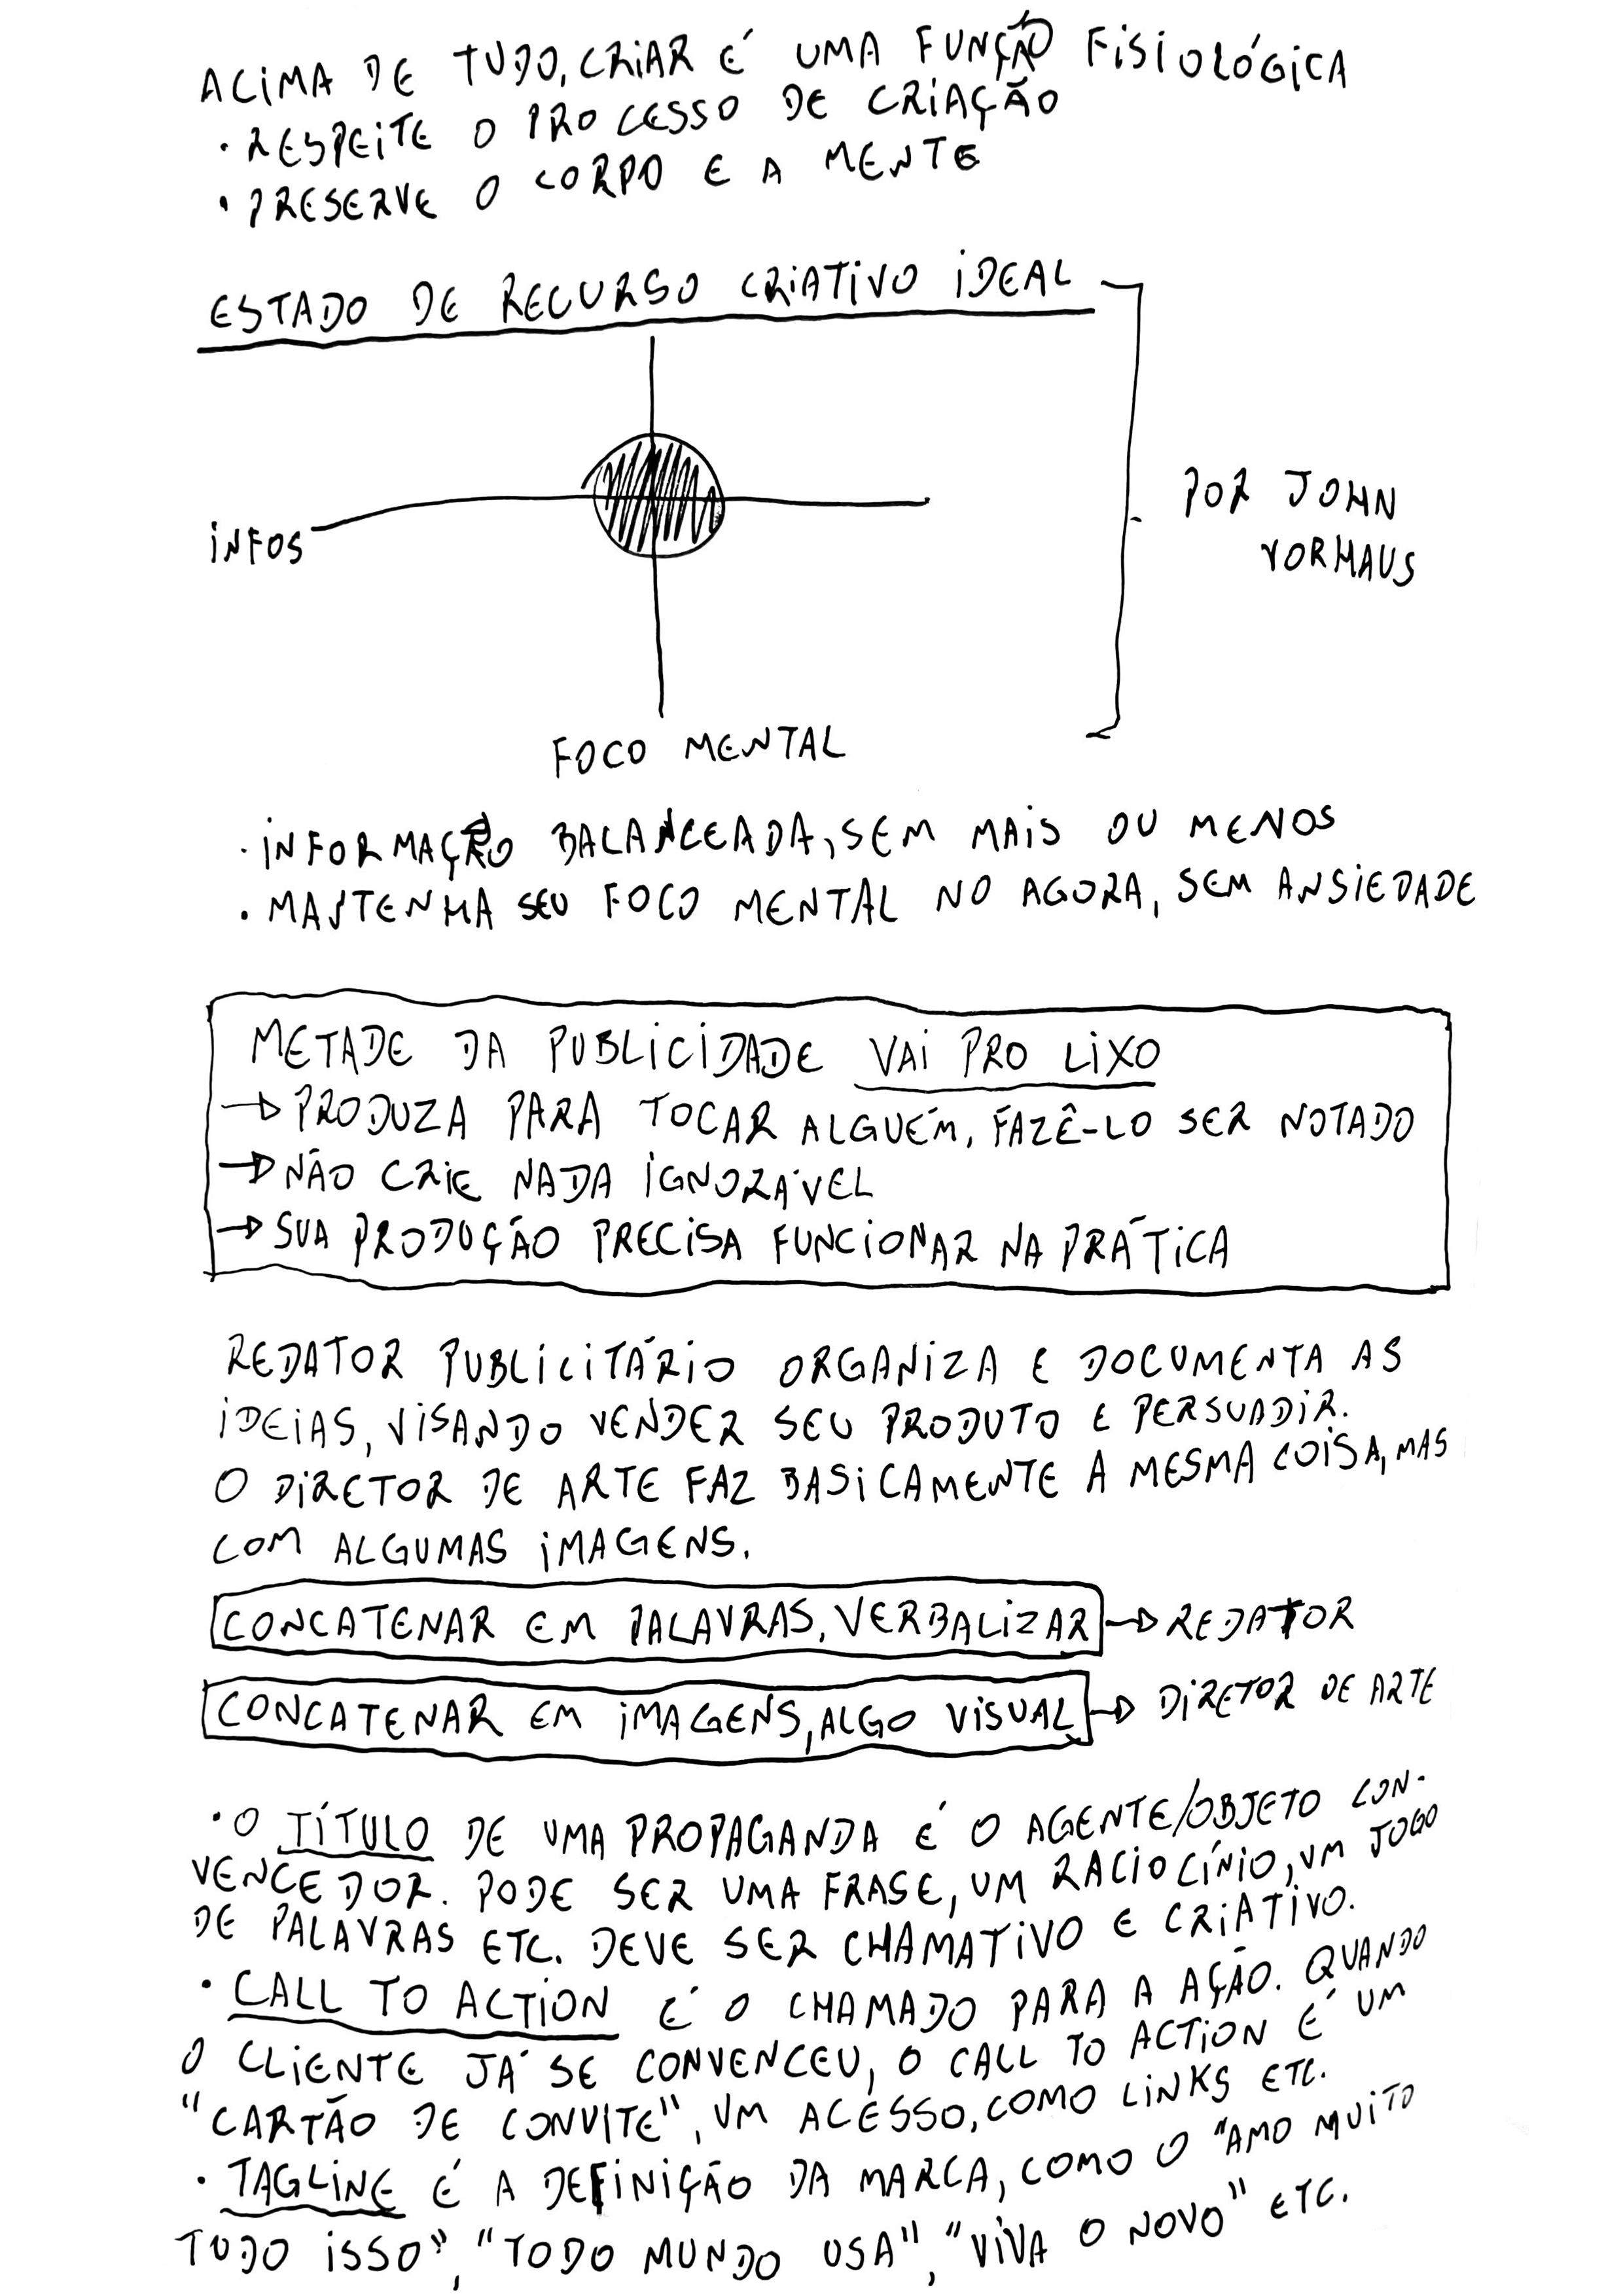 ACIMA DE TUDO, CRIAR É UMA FUNÇÃO FISIOLÓGICA
· RESPEITE O PROCESSO DE CRIAÇÃO
· PRESERVE O CORPO E A MENTE
ESTADO DE RECURSO CRIATIVO IDEAL
INFOS
POR JOHN
VORHAUS
FOCO MENTAL
· INFORMAÇÃO BALANCEADA, SEM MAIS OU MENOS
· MANTENHA SEU FOCO MENTAL NO AGORA, SEM ANSIEDADE
METADE DA PUBLICIDADE VAI PRO LIXO
→ PRODUZA PARA TOCAR ALGUÉM, FAZÊ-LO SER NOTADO
→ NÃO CRIE NADA IGNORÁVEL
→ SUA PRODUÇÃO PRECISA FUNCIONAR NA PRÁTICA
REDATOR PUBLICITÁRIO ORGANIZA E DOCUMENTA AS
IDEIAS, VISANDO VENDER SEU PRODUTO E PERSUADIR.
O DIRETOR DE ARTE FAZ BASICAMENTE A MESMA COISA, MAS
COM ALGUMAS IMAGENS.
CONCATENAR EM PALAVRAS, VERBALIZAR → REDATOR
CONCATENAR EM IMAGENS, ALGO VISUAL → DIRETOR DE ARTE
· O TÍTULO DE UMA PROPAGANDA É O AGENTE/OBJETO CON-
VENCEDOR. PODE SER UMA FRASE, UM RACIOCÍNIO, UM JOGO
DE PALAVRAS ETC. DEVE SER CHAMATIVO E CRIATIVO.
· CALL TO ACTION É O CHAMADO PARA A AÇÃO. QUANDO
O CLIENTE JÁ SE CONVENCEU, O CALL TO ACTION É UM
"CARTÃO DE CONVITE", UM ACESSO, COMO LINKS ETC.
· TAGLINE É A DEFINIÇÃO DA MARCA, COMO O "AMO MUITO
TUDO ISSO", "TODO MUNDO USA", "VIVA O NOVO" ETC.